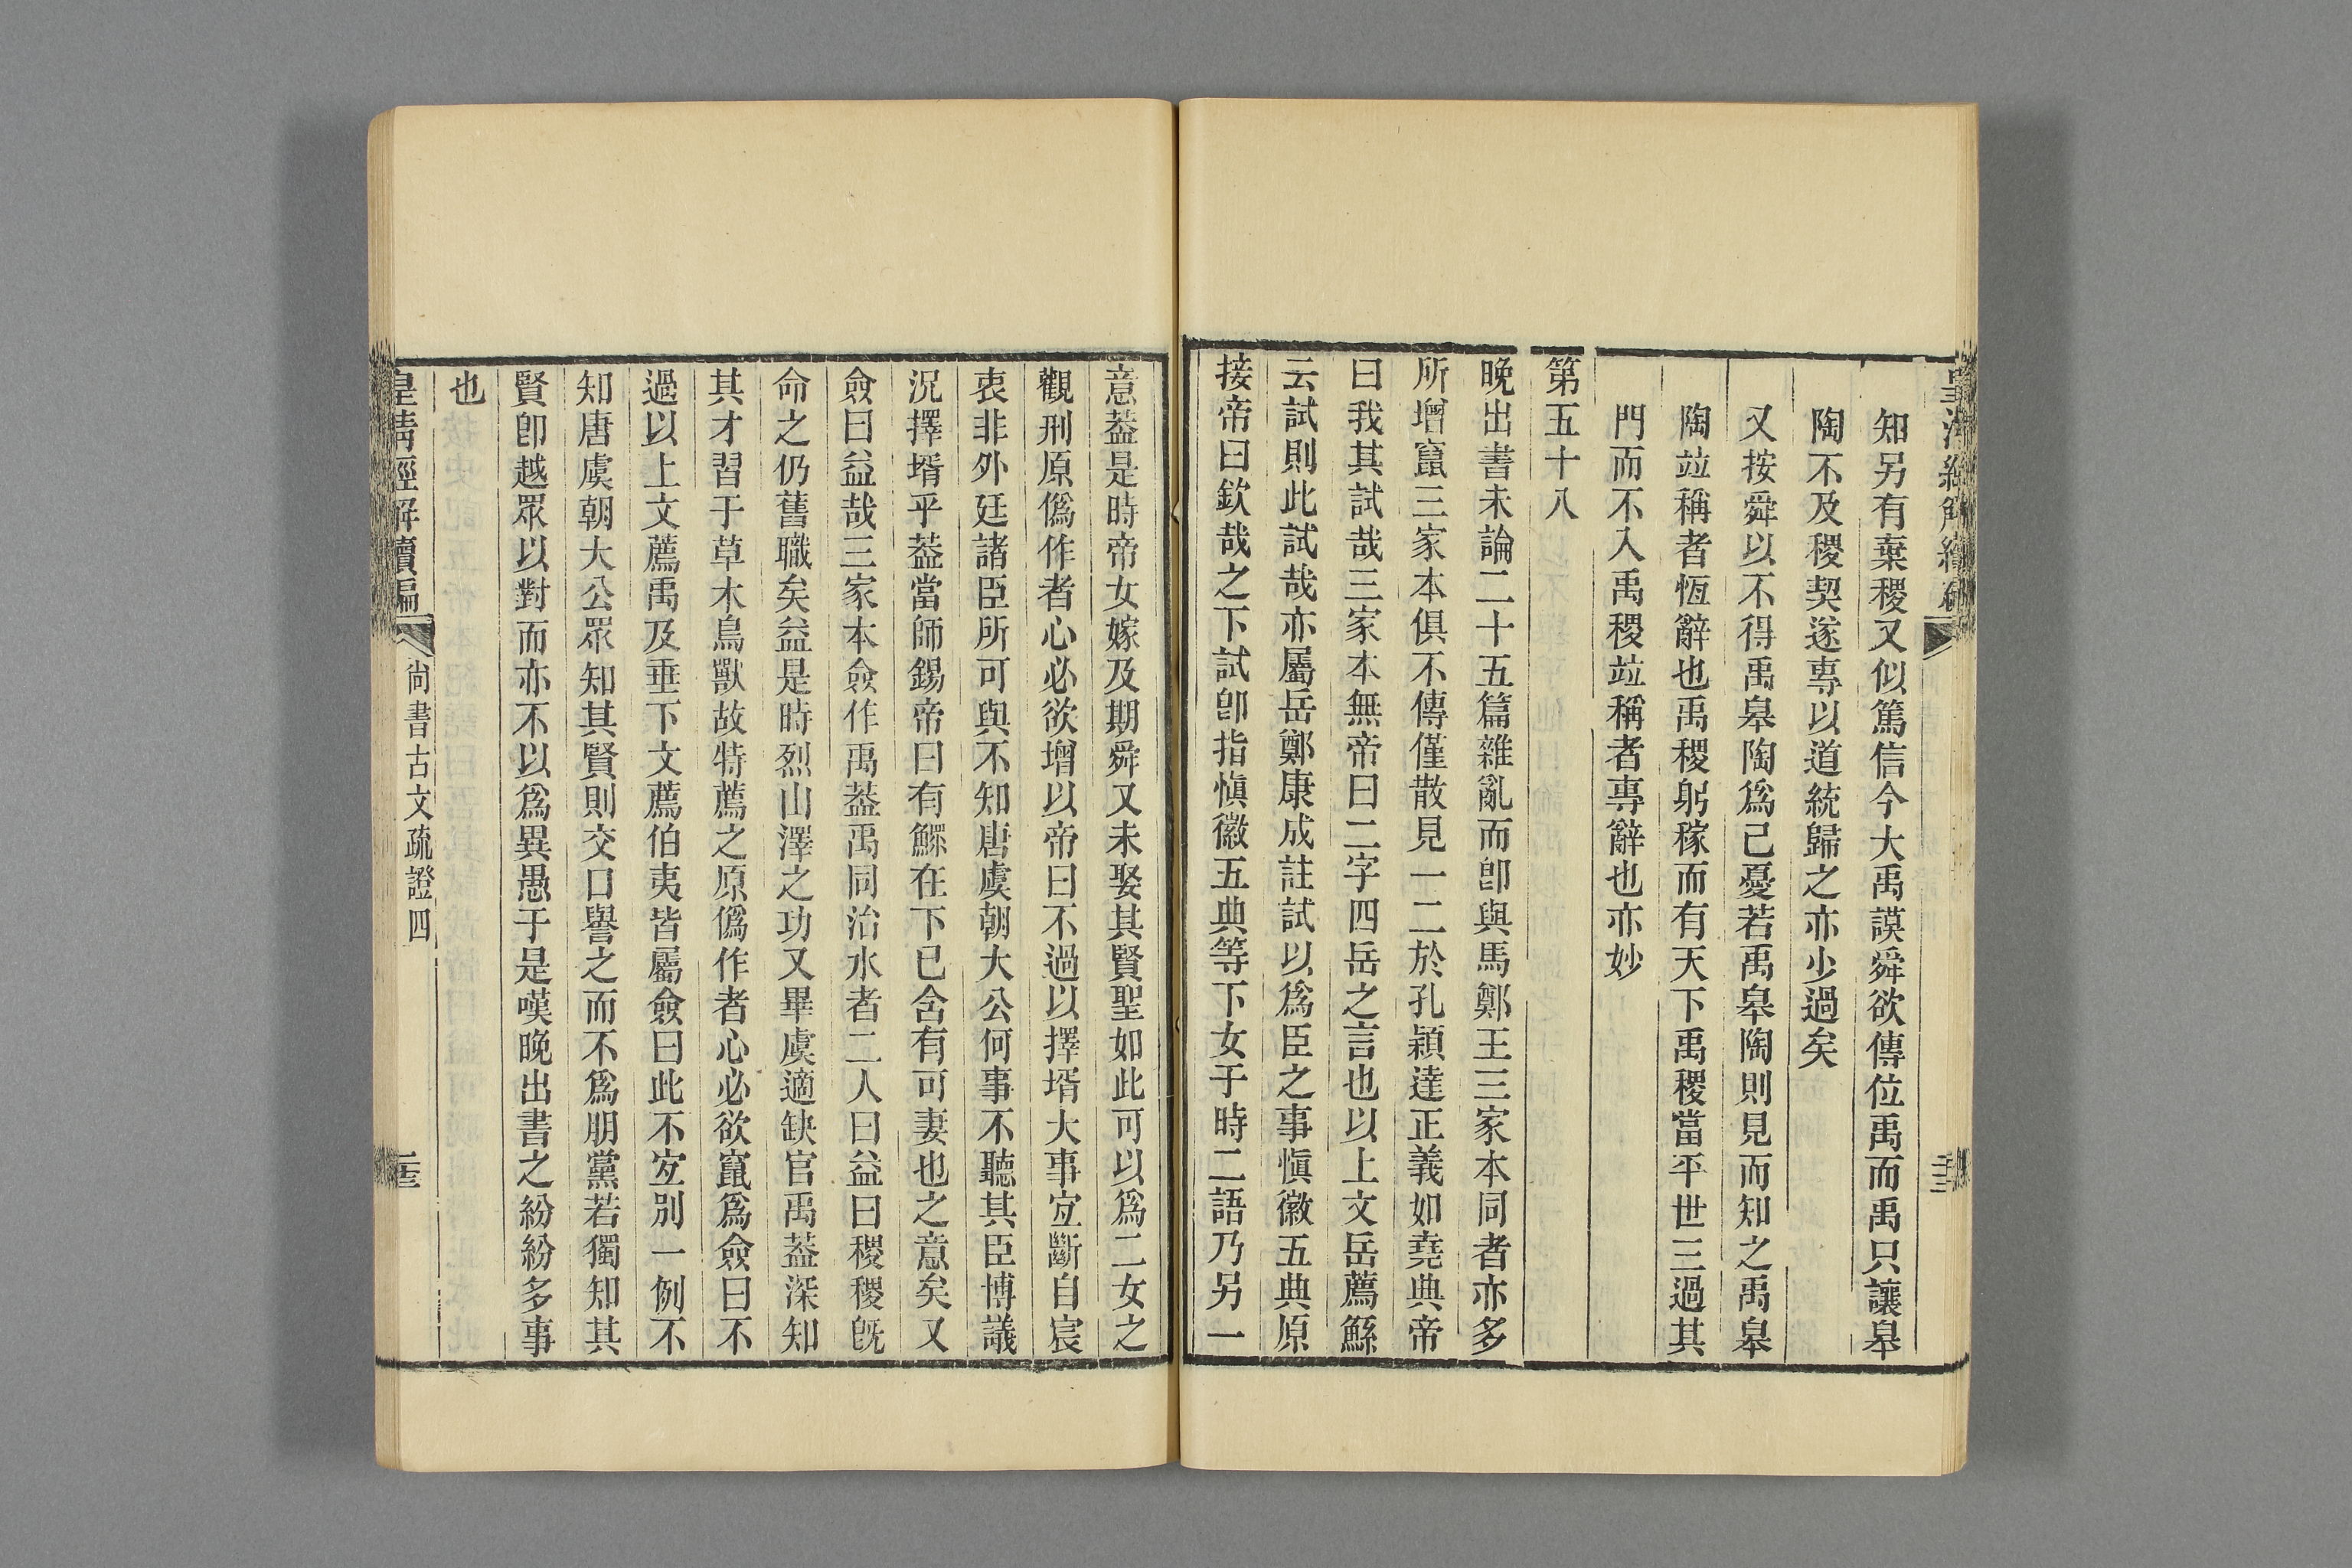 知另有棄稷又似篤信今大禹謨舜欲傳位禹而禹只讓皋
陶不及稷契遂專以道統歸之亦少過矣
又按舜以不得禹皋陶爲己憂若禹皋陶則見而知之禹皋
陶竝稱者恆辭也禹稷躬稼而有天下禹稷當平世三過其
門而不入禹稷竝稱者專辭也亦妙
第五十八
晚出書未論二十五篇雜亂而卽與馬鄭王三家本同者亦多
所增竄三家本俱不傳僅散見一二於孔穎達正義如堯典帝
曰我其試哉三家本無帝曰二字四岳之言也以上文岳薦鯀
云試則此試哉亦屬岳鄭康成註試以爲臣之事愼徽五典原
接帝曰欽哉之下試卽指愼徽五典等下女于時二語乃另一
意葢是時帝女嫁及期舜又未娶其賢聖如此可以爲二女之
觀刑原僞作者心必欲增以帝曰不過以擇壻大事宐斷自宸
衷非外廷諸臣所可與不知唐虞朝大公何事不聽其臣博議
況擇壻乎葢當師錫帝曰有鰥在下已含有可妻也之意矣又
僉曰益哉三家本僉作禹葢禹同治水者二人曰益曰稷稷旣
命之仍舊職矣益是時烈山澤之功又畢虞適缺官禹葢深知
其才習于草木鳥獸故特薦之原僞作者心必欲竄爲僉曰不
過以上文薦禹及垂下文薦伯夷皆屬僉曰此不宐別一例不
知唐虞朝大公眾知其賢則交口譽之而不爲朋黨若獨知其
賢卽越眾以對而亦不以爲異愚于是嘆晚出書之紛紛多事
也
皇清經解續編
尚書古文疏證四